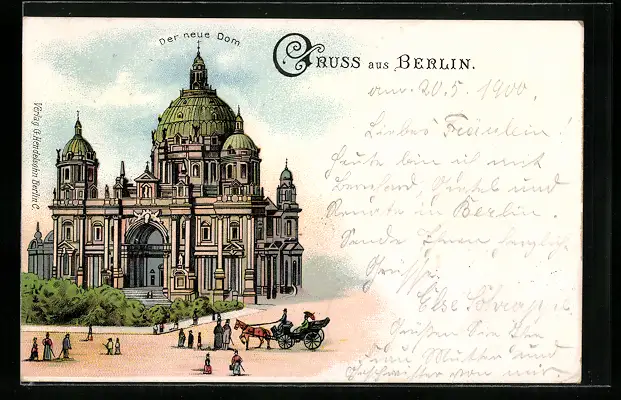 Der neue Dom.
GRUSS AUS BERLIN.
Verlag G. Hendelsohn Berlin C.
am 20.5.1900.
Liebes Fräulein!
Heute bin ich mit
Bernhard, und
Renate in Berlin.
Sende Ihnen herzliche
Grüsse
Else
Grüßen Sie Ihre
Frau Mutter und
Geschwister von mir